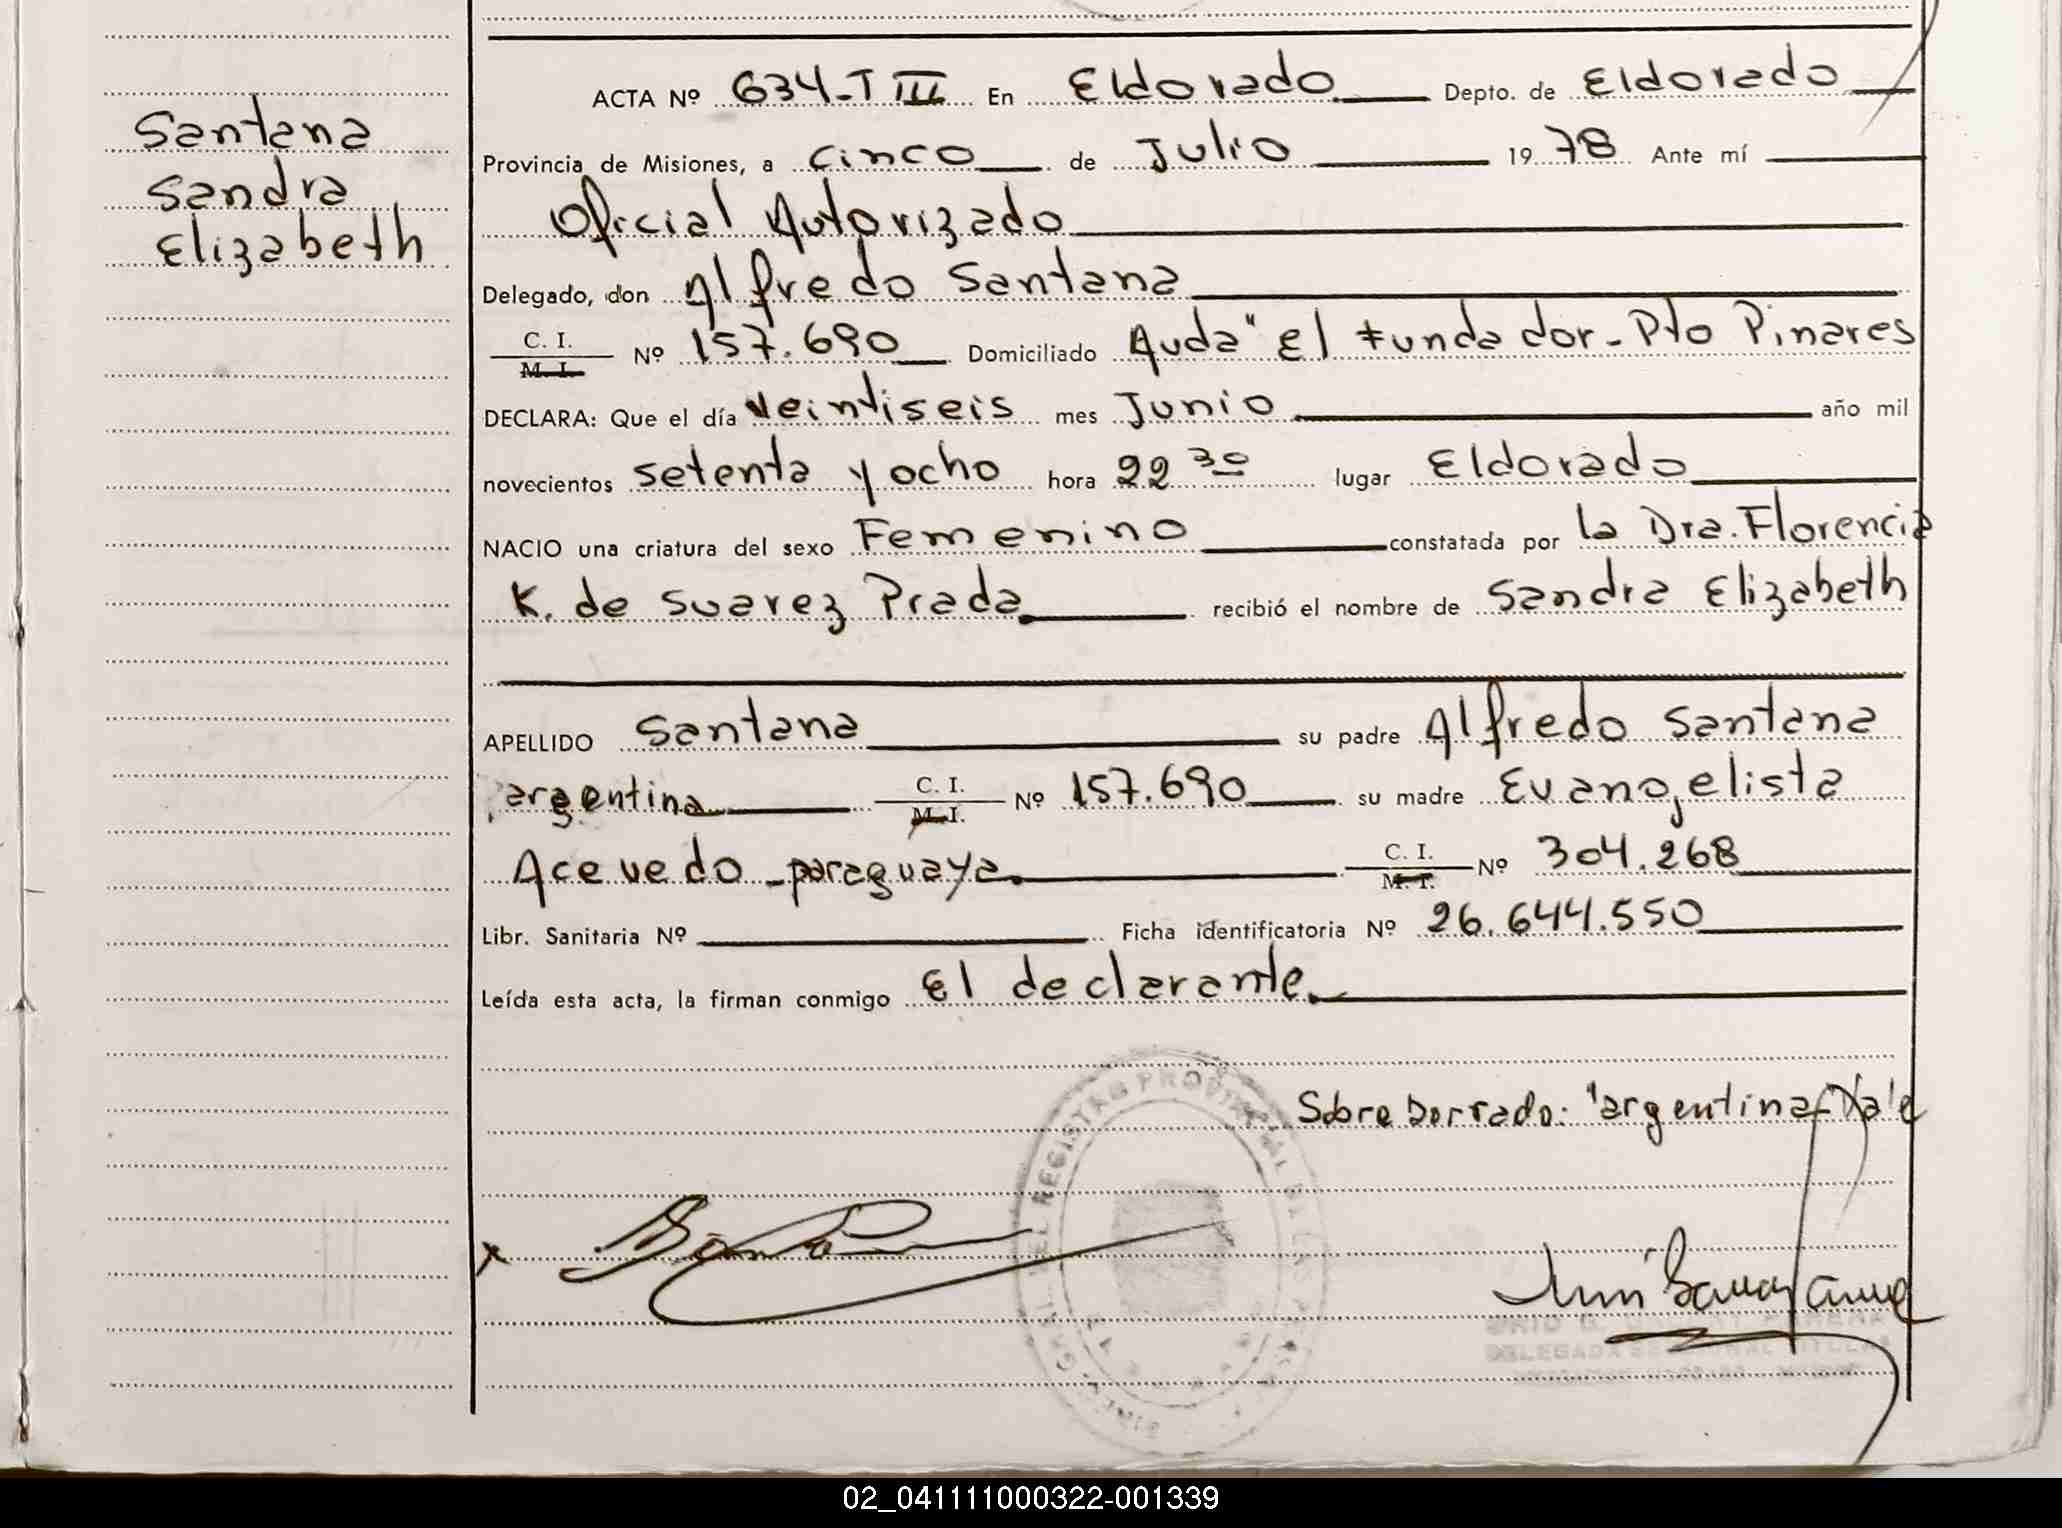 Santana
Sandra
Elizabeth
ACTA Nº 634-T III En Eldorado Depto. de Eldorado
Provincia de Misiones, a cinco de Julio 1978 Ante mí
Oficial Autorizado
Delegado, don Alfredo Santana
C. I.
M. I. Nº 157.690 Domiciliado Avda" El Fundador-Pto Pinares
DECLARA: Que el día veintiseis mes Junio año mil
novecientos setenta y ocho hora 22 30 lugar Eldorado
NACIO una criatura del sexo Femenino constatada por la Dra. Florencia
K. de Suarez Prada recibió el nombre de Sandra Elizabeth
APELLIDO Santana su padre Alfredo Santana
argentina C. I.
M. I. Nº 157.690 su madre Evangelista
Acevedo - paraguaya. C. I.
M. I. Nº 304.268
Libr. Sanitaria Nº Ficha identificatoria Nº 26.644.550
Leída esta acta, la firman conmigo El declarante.
Sobre borrado: "argentina" Vale
DEL REGISTRO PROVINCIAL DE LAS
DELEGADA
02_041111000322-001339